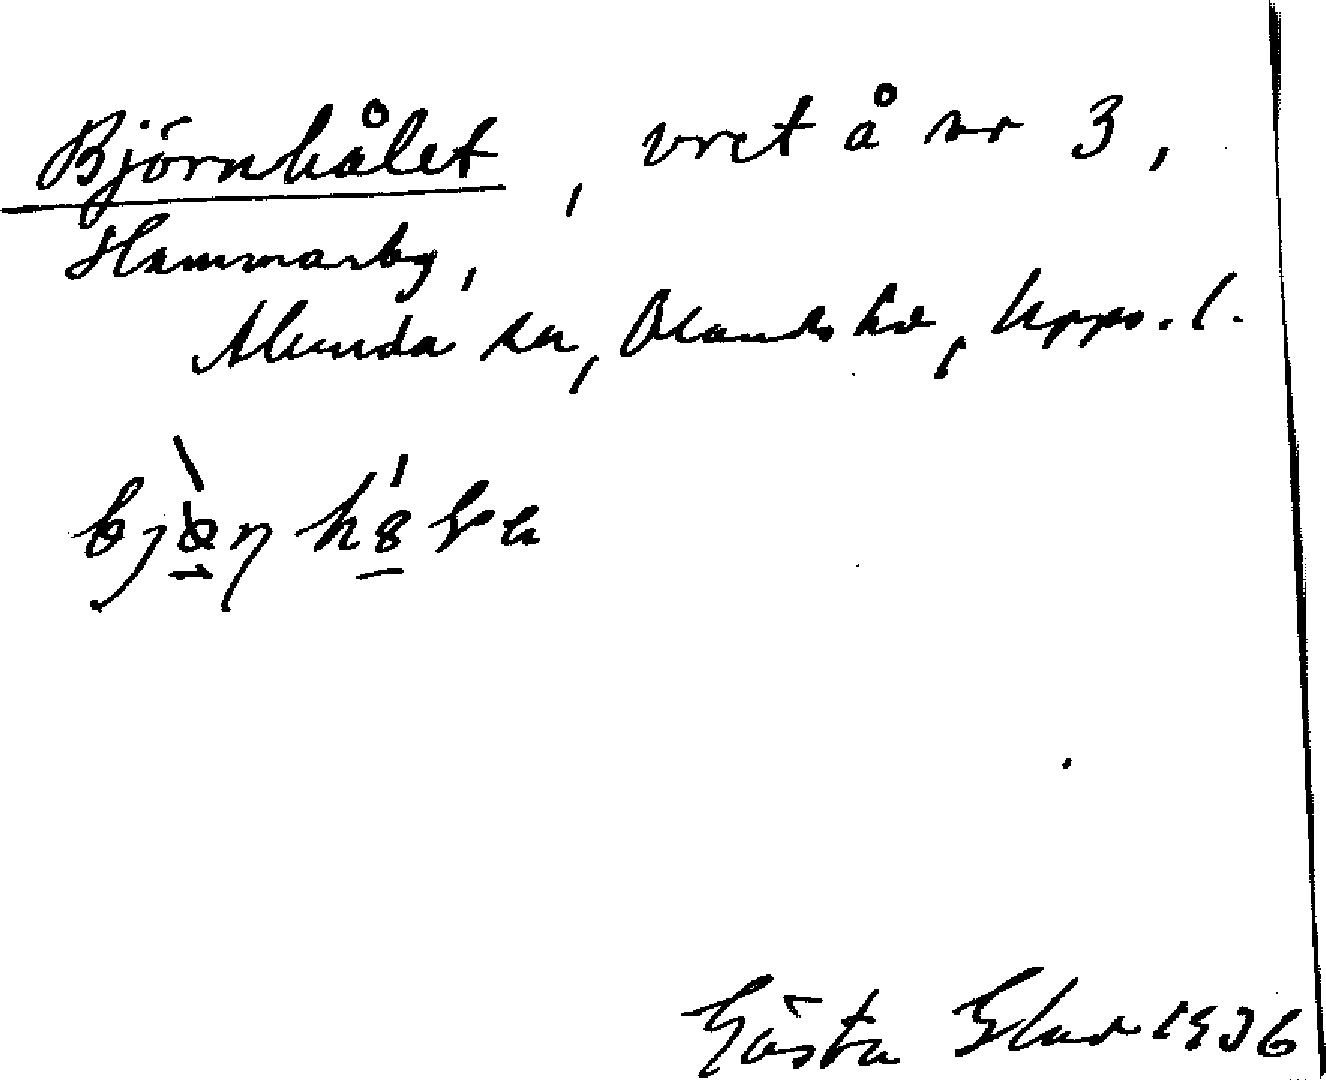 Björnhålet, vret å nr 3,
Hammarby,
Alunda sn, Olands hd, Upps. l.
Gösta 1936